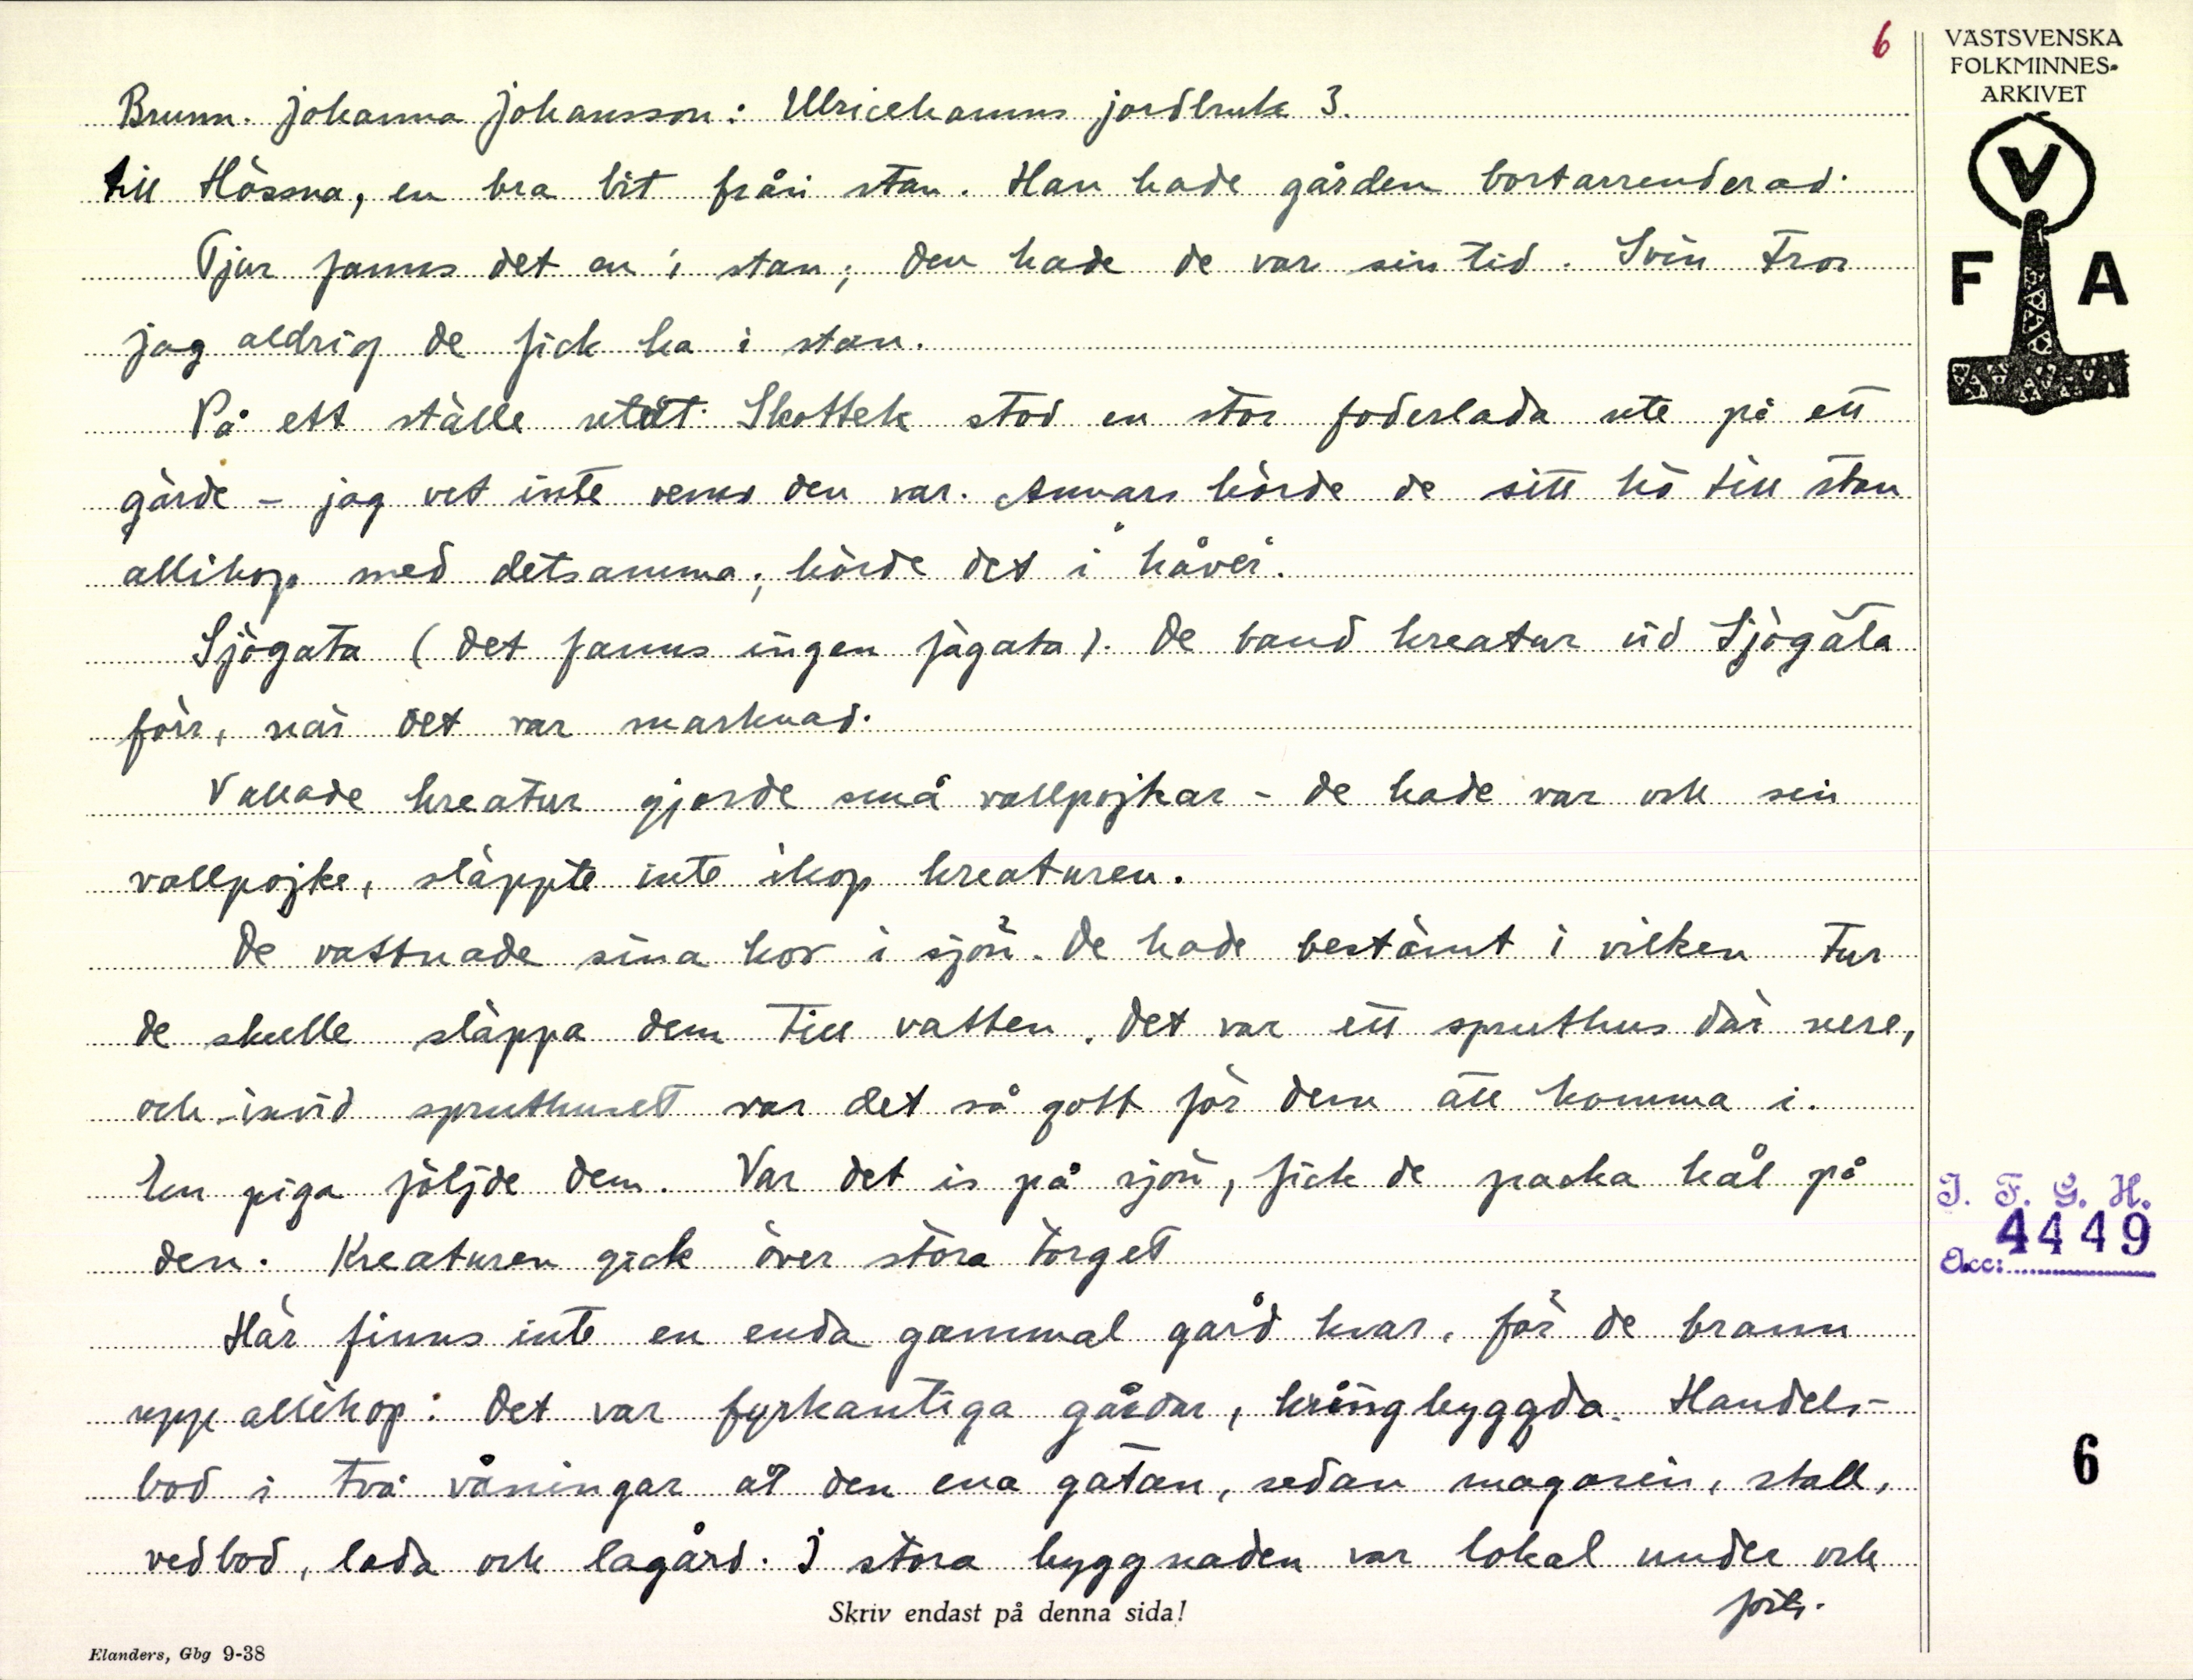 6
VÄSTSVENSKA
FOLKMINNES-
ARKIVET
V
F A
Brunn. Johanna Johansson: Ulricehamns jordbruk 3.
till Hössna, en bra bit från stan. Han hade gården bortarrenderad.
Tjur fanns det en i stan; den hade de var sin tid. Svin tror
jag aldrig de fick ha i stan.
På ett ställe utåt Skottek stod en stor foderlada ute på ett
gärde - jag vet inte vems den var. Annars körde de sitt hö till stan
allihop med detsamma; körde det i "håvei".
Sjögata (det fanns ingen sjågata). De band kreatur vid Sjögata
förr, när det var marknad.
Vallade kreatur gjorde små vallpojkar - de hade var och sin
vallpojke, släppte inte ihop kreaturen.
De vattnade sina kor i sjön. De hade bestämt i vilken tur
de skulle släppa dem till vatten. Det var ett spruthus där nere,
och invid spruthuset var det så gott för dem att komma i.
En piga följde dem. Var det is på sjön, fick de packa hål på
den. Kreaturen gick över stora torget
Här finns inte en enda gammal gård kvar, för de brann
upp allihop: Det var fyrkantiga gårdar, kringbyggda. Handels-
bod i två våningar åt den ena gatan, sedan magasin, stall,
vedbod, lada och lagård. I stora byggnaden var lokal under och
forts.
Skriv endast på denna sida!
Elanders, Gbg 9-38
I. F. G. H.
4449
Acc:
6